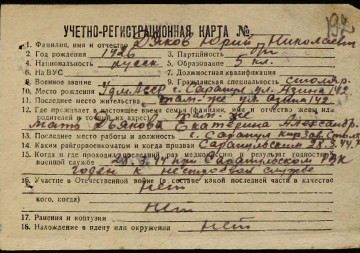 192
УЧЕТНО-РЕГИСТРАЦИОННАЯ КАРТА №
1. Фамилия, имя и отчество Дьяков Юрий Николаевич
2. Год рождения 1926 3. Партийность б/п
4. Национальность русск 5. Образование 5 кл.
6. На ВУС 7. Должностная квалификация
8. Военное звание 9. Гражданская специальность столяр.
10. Место рождения Удм. АССР г. Сарапул ул. Азина 142
11. Последнее место жительства там-же ул. Азина 142
12. Где проживает в настоящее время семья (фамилия, имя и отчество жены или
родителей и точный их адрес) там же
Мать Дьякова Екатерина Александр.
13. Последнее место работы и должность г. Сарапул
14. Каким райгорвоенкоматом и когда призван Сарапульским 28.3.44 г.
15. Когда и где проходил последний раз медкомиссию и результат годности к
военной службе при Сарапульском РВК
годен к нестроевой службе
16. Участие в Отечественной войне (в составе какой последней части в качестве
нет
кого, когда)
нет
17. Ранения и контузии
18. Нахождение в плену или окружении нет